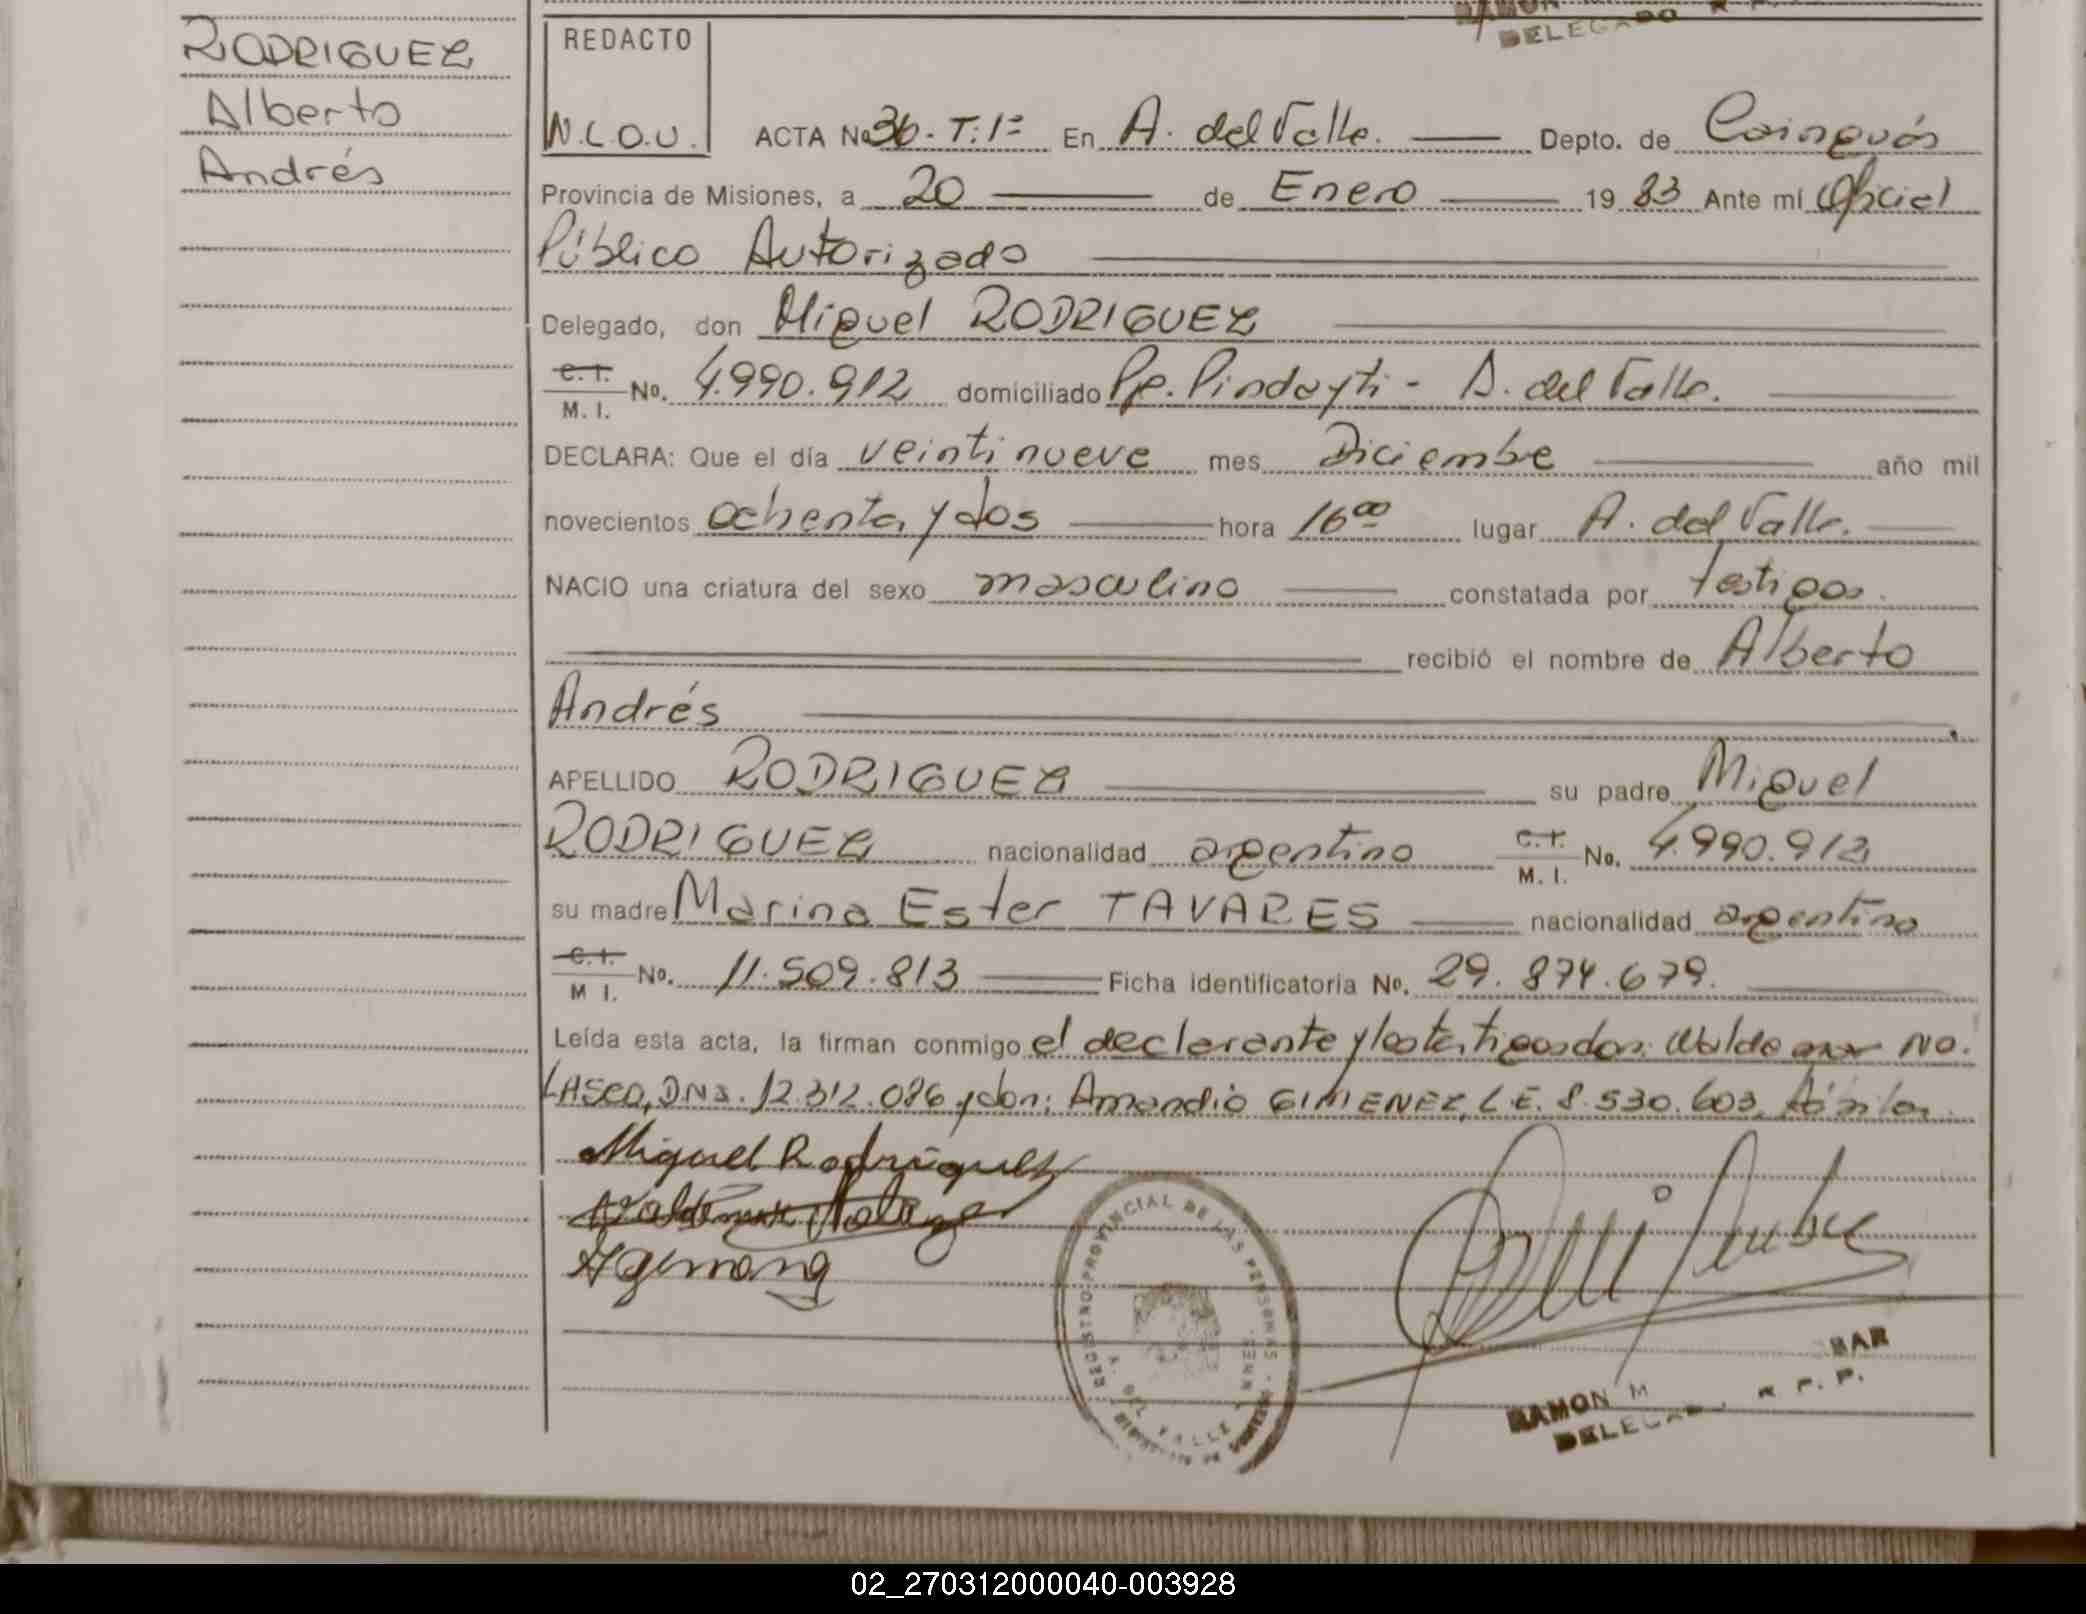 RODRIGUEZ
Alberto
Andrés
DELEGADO R. P.
REDACTO
N.L.O.U.
ACTA No 36 - T: 1º En A. del Valle. Depto. de Cainguás
Provincia de Misiones, a 20 de Enero 19 83 Ante mí Oficial
Público Autorizado
Delegado, don Miguel RODRIGUEZ
C. I. M. I. No. 4.990.912 domiciliado Pje. Pindayti - A. del Valle.
DECLARA: Que el día veintinueve mes Diciembre año mil
novecientos ochenta y dos hora 16 00 lugar A. del Valle.
NACIO una criatura del sexo masculino constatada por testigos.
recibió el nombre de Alberto
Andrés
APELLIDO RODRIGUEZ su padre Miguel
RODRIGUEZ nacionalidad argentino C. I. M. I. No. 4.990.912
su madre Marina Ester TAVARES nacionalidad argentina
C. I. M I. No. 11.509.813 Ficha identificatoria No. 29.874.679.
Leída esta acta, la firman conmigo el declarante y los testigos don: Waldemar NO.
LASCO, DNI. 12.312.086 y don: Amandio GIMENEZ, L.E. 8.530.603
Miguel Rodriguez
REGISTRO PROVINCIAL DE LAS PERSONAS
A. DEL VALLE
RAMON M BAR
DELEGADO R. P. P.
02_270312000040-003928